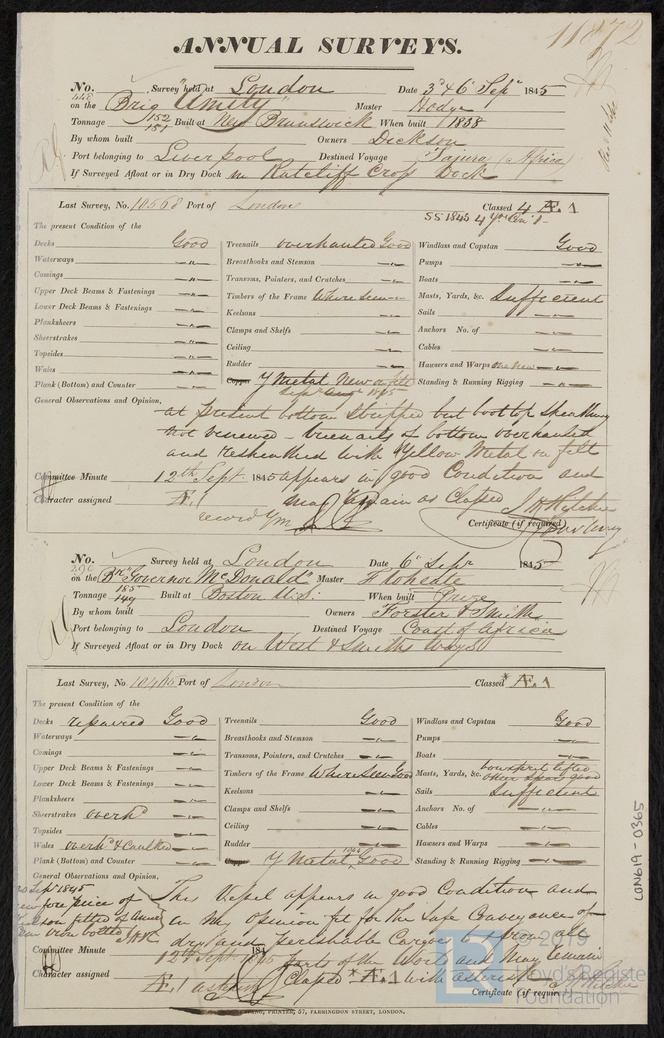 11872
ANNUAL SURVEYS.
No. 448 Survey held at London Date 3d & 6 Sepr 1845
on the Brig "Amity" Master Hedge
Tonnage 152 151 Built at New Brunswick When built 1838
By whom built Owners Dickson
Port belonging to Liverpool Destined Voyage Tajura (Africa)
If Surveyed Afloat or in Dry Dock in Ratcliff Cross Dock
Last Survey, No. 10568 Port of London Classed 4 Æ 1
SS 1845 4 Yrs
The present Condition of the
Decks Good Treenails overhauled Good Windlass and Capstan Good
Waterways " Breasthooks and Stemson " Pumps "
Comings " Transoms, Pointers, and Crutches " Boats "
Upper Deck Beams & Fastenings " Timbers of the Frame Where seen " Masts, Yards, &c. Sufficient
Lower Deck Beams & Fastenings " Keelsons " Sails "
Planksheers " Clamps and Shelfs " Anchors No. of "
Sheerstrakes " Ceiling " Cables "
Topsides " Rudder " Hawsers and Warps one new "
Wales " Copper Y Metal New on felt Standing & Running Rigging "
Plank (Bottom) and Counter " 1845
General Observations and Opinion,
at present bottom stripped but boot top sheathing
not renewed - treenails of bottom overhauled
and resheathed with Yellow Metal on felt
Committee Minute 12th Sept. 1845 appears in good Condition and
Character assigned Æ 1 may remain as Classed
record YM
Certificate (if required)
No. 290 Survey held at London Date 6 Sepr 1845
on the Bk "Governor McDonald" Master
Tonnage 185 149 Built at Boston U.S. When built Prize
By whom built Owners Forster & Smith
Port belonging to London Destined Voyage Coast of Africa
If Surveyed Afloat or in Dry Dock on West & Smiths Ways
Last Survey, No. 10465 Port of London Classed *Æ 1
The present Condition of the
Decks repaired Good Treenails Good Windlass and Capstan Good
Waterways " Breasthooks and Stemson " Pumps "
Comings " Transoms, Pointers, and Crutches " Boats "
Upper Deck Beams & Fastenings " Timbers of the Frame Where Seen Good Masts, Yards, &c. bowsprit lifted other spars good
Lower Deck Beams & Fastenings " Keelsons " Sails Sufficient
Planksheers " Clamps and Shelfs " Anchors No. of "
Sheerstrakes overhd Ceiling " Cables "
Topsides " Rudder " Hawsers and Warps "
Wales overhd & Caulked Copper Y Metal Good Standing & Running Rigging "
Plank (Bottom) and Counter "
General Observations and Opinion,
Sept 1845
fore piece of
iron bolted
This Vessel appears in good Condition and
in my opinion fit for the safe Conveyance of
dry and Perishable Cargoes to & from all
Committee Minute 12th Sept 1845 parts of the World and may remain
Character assigned Æ 1 Classed *Æ 1 with asterisk
Certificate (if required)
PRINTER, 57, FARRINGDON STREET, LONDON.
LON619-0365
© 2019
Lloyd's Register
Foundation